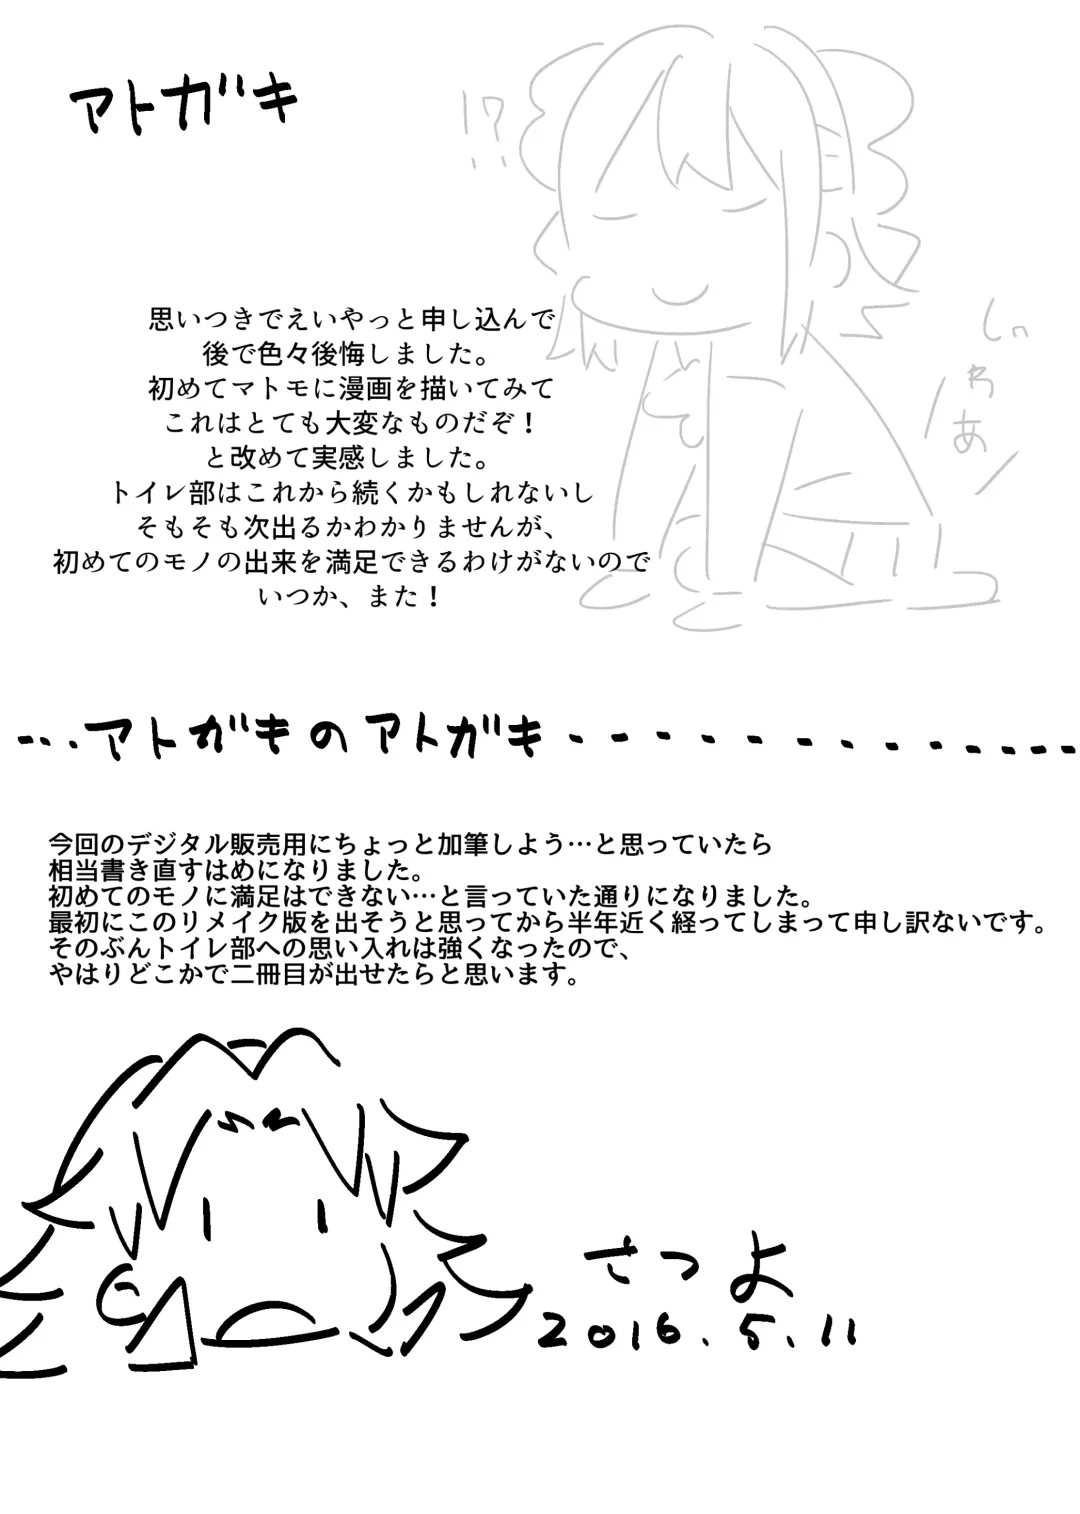 アトガキ
!?
思いつきでえいやっと申し込んで
後で色々後悔しました。
初めてマトモに漫画を描いてみて
これはとても大変なものだぞ！
と改めて実感しました。
トイレ部はこれから続くかもしれないし
そもそも次出るかわかりませんが、
初めてのモノの出来を満足できるわけがないので
いつか、また！
…アトガキのアトガキ
今回のデジタル販売用にちょっと加筆しよう…と思っていたら
相当書き直すはめになりました。
初めてのモノに満足はできない…と言っていた通りになりました。
最初にこのリメイク版を出そうと思ってから半年近く経ってしまって申し訳ないです。
そのぶんトイレ部への思い入れは強くなったので、
やはりどこかで二冊目が出せたらと思います。
さつよ
2016.5.11